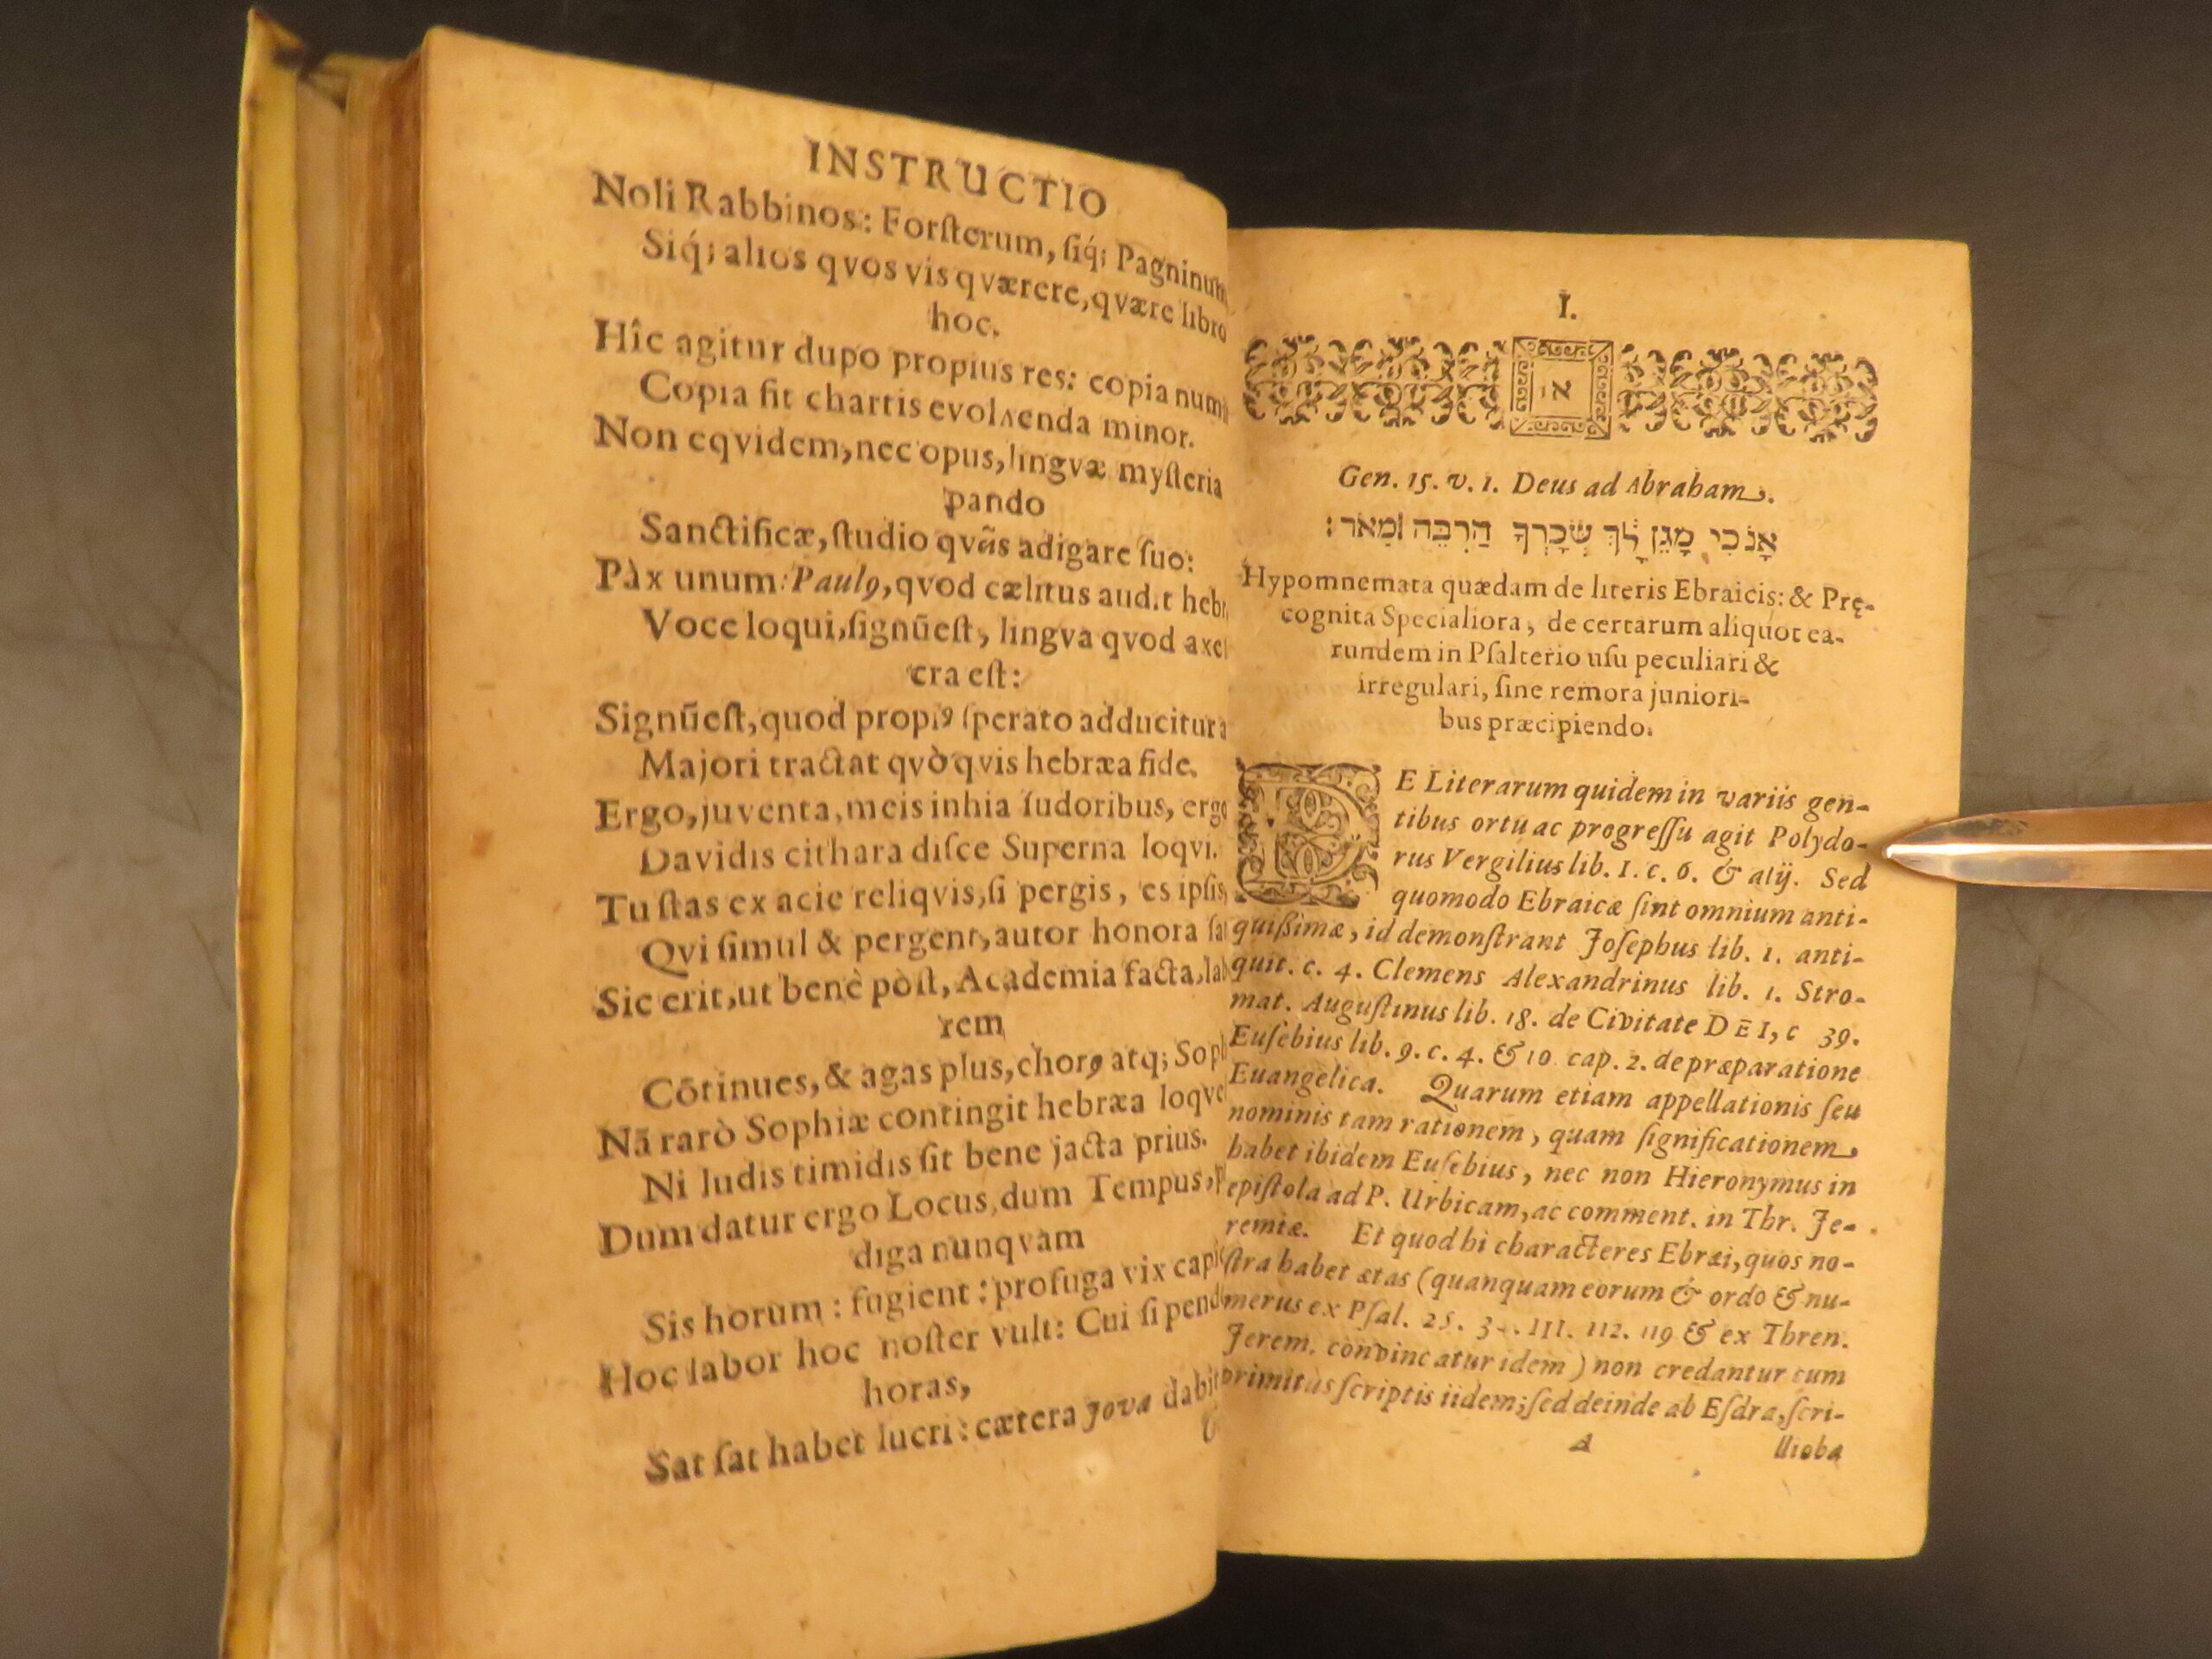 INSTRUCTIO
Noli Rabbinos: Forſterum, ſiq́; Pagninum
Siq́; alios qvos vis qværere, qvære libro
hoc.
Hîc agitur dupo propius res: copia num
Copia fit chartis evolvenda minor.
Non eqvidem, nec opus, lingvæ myſteria
pando
Sanctificæ, ſtudio qvãs adigare ſuo:
Pàx unum: Paulꝰ, qvod cælitus audit hebr
Voce loqui, ſignũ eſt, lingva qvod axe
cra eſt:
Signũ eſt, quod propiꝰ ſperato adducitur a
Majori tractat qvò qvis hebræa fide.
Ergo, juventa, meis inhia ſudoribus, ergo
Davidis cithara diſce Superna loqvi.
Tu ſtas ex acie reliqvis, ſi pergis, es ipſis
Qvi ſimul & pergent, autor honora
Sic erit, ut benè pòſt, Academia facta, la
rem
Cõtinues, & agas plus, chorꝰ atq; Soph
Nã rarò Sophiæ contingit hebræa loqve
Ni ludis timidis ſit bene jacta prius.
Dum datur ergo Locus, dum Tempus,
diga nunqvam
Sis horum: fugient: profuga vix capi
Hoc labor hoc noſter vult: Cui ſi pend
horas,
Sat ſat habet lucri: cætera Jova dabit
I.
א
Gen. 15. v. 1. Deus ad Abraham.
אָנֹכִי מָגֵן לָךְ שְׂכָרְךָ הַרְבֵּה מְאֹד׃
Hypomnemata quædam de literis Ebraicis: & Prę-
cognita Specialiora, de certarum aliquot ea-
rundem in Pſalterio uſu peculiari &
irregulari, ſine remora juniori-
bus præcipiendo.
DE Literarum quidem in variis gen-
tibus ortu ac progreſſu agit Polydo-
rus Vergilius lib. 1. c. 6. & alij. Sed
quomodo Ebraicæ ſint omnium anti-
quißimæ, id demonſtrant Joſephus lib. 1. anti-
quit. c. 4. Clemens Alexandrinus lib. 1. Stro-
mat. Auguſtinus lib. 18. de Civitate DEI, c 39.
Euſebius lib. 9. c. 4. & 10 cap. 2. de præparatione
Euangelica. Quarum etiam appellationis ſeu
nominis tam rationem, quam ſignificationem
habet ibidem Euſebius, nec non Hieronymus in
epiſtola ad P. Urbicam, ac comment. in Thr. Je-
remiæ. Et quod hi characteres Ebræi, quos no-
ſtra habet ætas (quanquam eorum & ordo & nu-
merus ex Pſal. 25. 111. 112. 119 & ex Thren.
Jerem. convincatur idem) non credantur cum
primitùs ſcriptis iidem; ſed deinde ab Eſdra, ſcri-
A